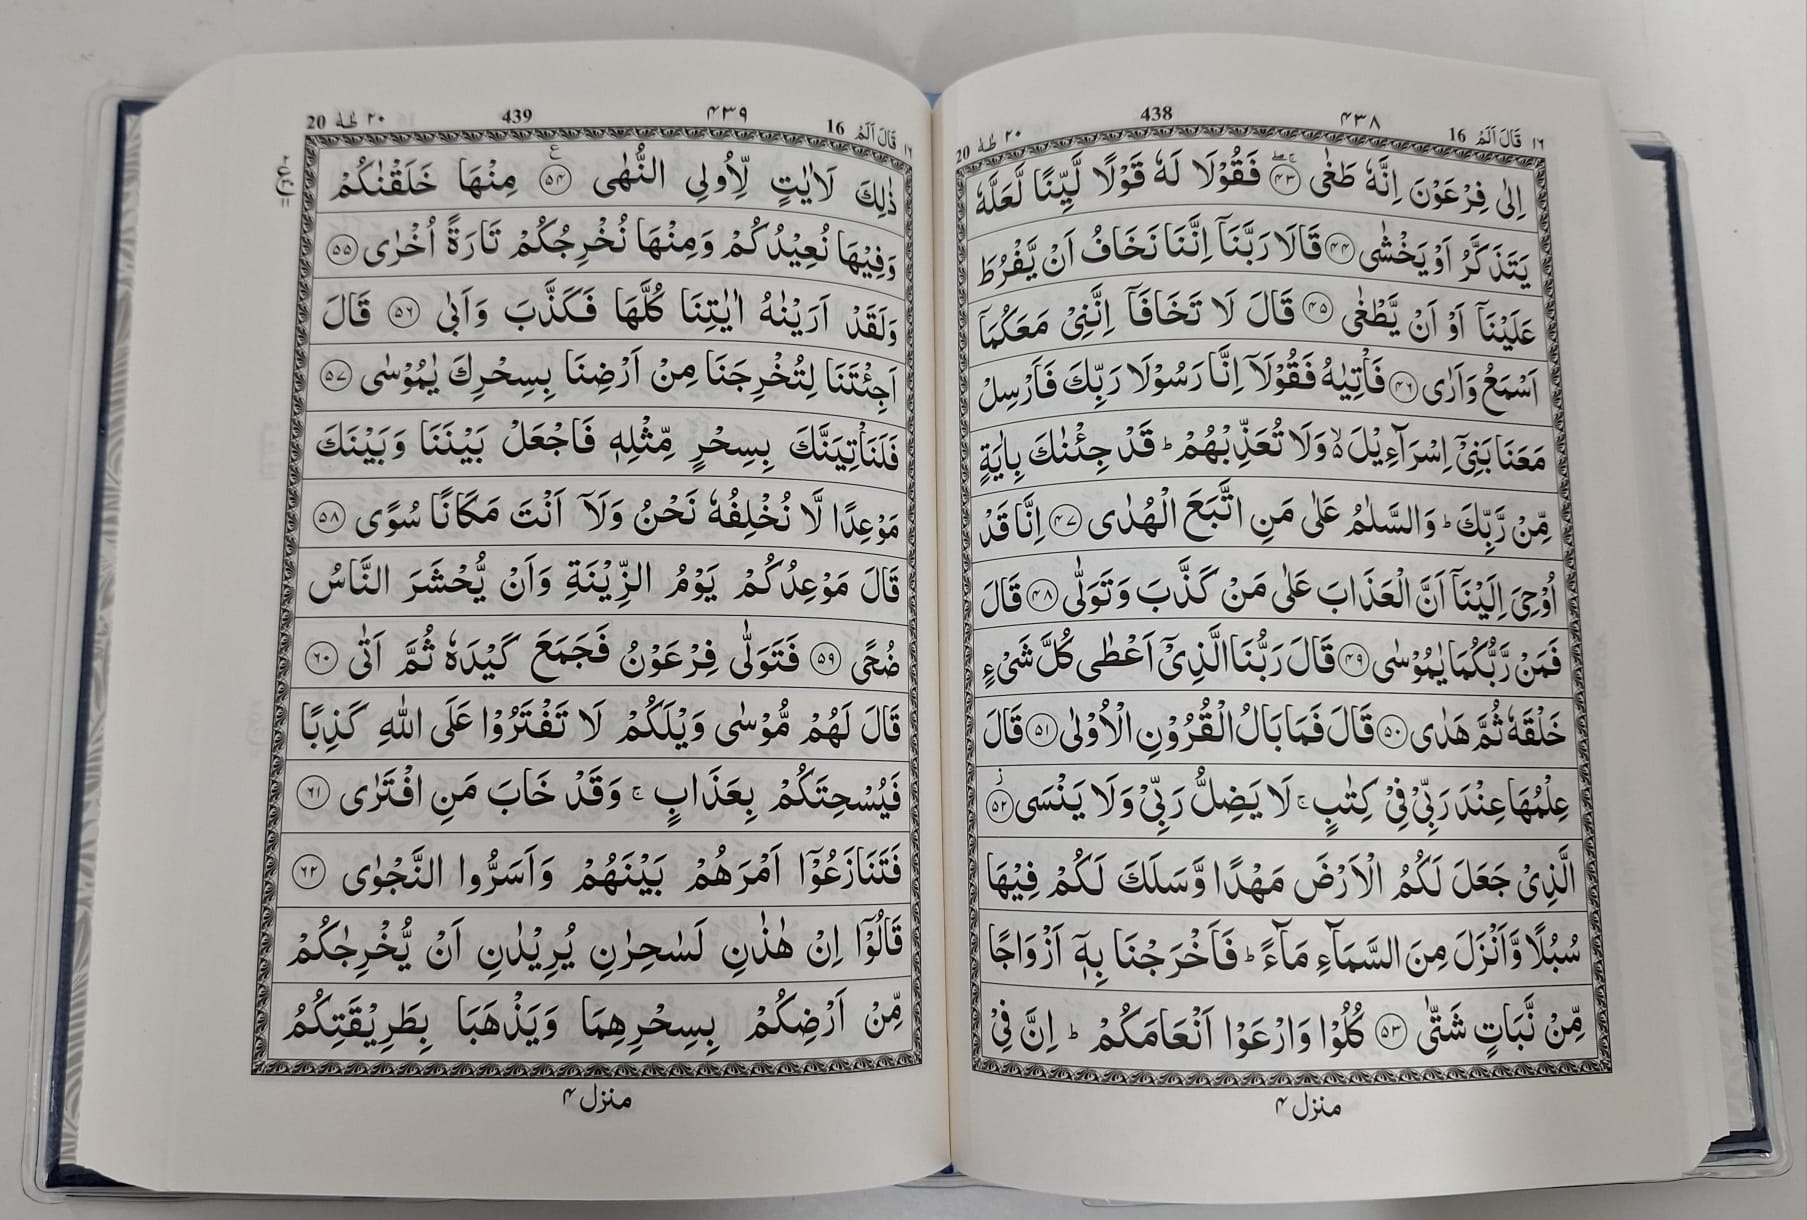 ١٦ قَالَ اَلَمْ 16 ۴۳۸ 438 ٢٠ طٰهٰ 20
اِلٰى فِرْعَوْنَ اِنَّهٗ طَغٰى ۴۳ فَقُوْلَا لَهٗ قَوْلًا لَّيِّنًا لَّعَلَّهٗ
يَتَذَكَّرُ اَوْ يَخْشٰى ۴۴ قَالَا رَبَّنَآ اِنَّنَا نَخَافُ اَنْ يَّفْرُطَ
عَلَيْنَآ اَوْ اَنْ يَّطْغٰى ۴۵ قَالَ لَا تَخَافَآ اِنَّنِيْ مَعَكُمَآ
اَسْمَعُ وَاَرٰى ۴۶ فَاْتِيٰهُ فَقُوْلَآ اِنَّا رَسُوْلَا رَبِّكَ فَاَرْسِلْ
مَعَنَا بَنِيْٓ اِسْرَآءِيْلَ ۙ وَلَا تُعَذِّبْهُمْ ؕ قَدْ جِئْنٰكَ بِاٰيَةٍ
مِّنْ رَّبِّكَ ؕ وَالسَّلٰمُ عَلٰى مَنِ اتَّبَعَ الْهُدٰى ۴۷ اِنَّا قَدْ
اُوْحِيَ اِلَيْنَآ اَنَّ الْعَذَابَ عَلٰى مَنْ كَذَّبَ وَتَوَلّٰى ۴۸ قَالَ
فَمَنْ رَّبُّكُمَا يٰمُوْسٰى ۴۹ قَالَ رَبُّنَا الَّذِيْٓ اَعْطٰى كُلَّ شَيْءٍ
خَلْقَهٗ ثُمَّ هَدٰى ۵۰ قَالَ فَمَا بَالُ الْقُرُوْنِ الْاُوْلٰى ۵۱ قَالَ
عِلْمُهَا عِنْدَ رَبِّيْ فِيْ كِتٰبٍ ۚ لَا يَضِلُّ رَبِّيْ وَلَا يَنْسَى ۵۲
الَّذِيْ جَعَلَ لَكُمُ الْاَرْضَ مَهْدًا وَّسَلَكَ لَكُمْ فِيْهَا
سُبُلًا وَّاَنْزَلَ مِنَ السَّمَآءِ مَآءً ؕ فَاَخْرَجْنَا بِهٖٓ اَزْوَاجًا
مِّنْ نَّبَاتٍ شَتّٰى ۵۳ كُلُوْا وَارْعَوْا اَنْعَامَكُمْ ؕ اِنَّ فِيْ
منزل ۴
١٦ قَالَ اَلَمْ 16 ۴۳۹ 439 ٢٠ طٰهٰ 20
ذٰلِكَ لَاٰيٰتٍ لِّاُولِي النُّهٰى ۵۴ مِنْهَا خَلَقْنٰكُمْ
وَفِيْهَا نُعِيْدُكُمْ وَمِنْهَا نُخْرِجُكُمْ تَارَةً اُخْرٰى ۵۵
وَلَقَدْ اَرَيْنٰهُ اٰيٰتِنَا كُلَّهَا فَكَذَّبَ وَاَبٰى ۵۶ قَالَ
اَجِئْتَنَا لِتُخْرِجَنَا مِنْ اَرْضِنَا بِسِحْرِكَ يٰمُوْسٰى ۵۷
فَلَنَاْتِيَنَّكَ بِسِحْرٍ مِّثْلِهٖ فَاجْعَلْ بَيْنَنَا وَبَيْنَكَ
مَوْعِدًا لَّا نُخْلِفُهٗ نَحْنُ وَلَآ اَنْتَ مَكَانًا سُوًى ۵۸
قَالَ مَوْعِدُكُمْ يَوْمُ الزِّيْنَةِ وَاَنْ يُّحْشَرَ النَّاسُ
ضُحًى ۵۹ فَتَوَلّٰى فِرْعَوْنُ فَجَمَعَ كَيْدَهٗ ثُمَّ اَتٰى ۶۰
قَالَ لَهُمْ مُّوْسٰى وَيْلَكُمْ لَا تَفْتَرُوْا عَلَى اللّٰهِ كَذِبًا
فَيُسْحِتَكُمْ بِعَذَابٍ ۚ وَقَدْ خَابَ مَنِ افْتَرٰى ۶۱
فَتَنَازَعُوْٓا اَمْرَهُمْ بَيْنَهُمْ وَاَسَرُّوا النَّجْوٰى ۶۲
قَالُوْٓا اِنْ هٰذٰنِ لَسٰحِرٰنِ يُرِيْدٰنِ اَنْ يُّخْرِجٰكُمْ
مِّنْ اَرْضِكُمْ بِسِحْرِهِمَا وَيَذْهَبَا بِطَرِيْقَتِكُمُ
منزل ۴